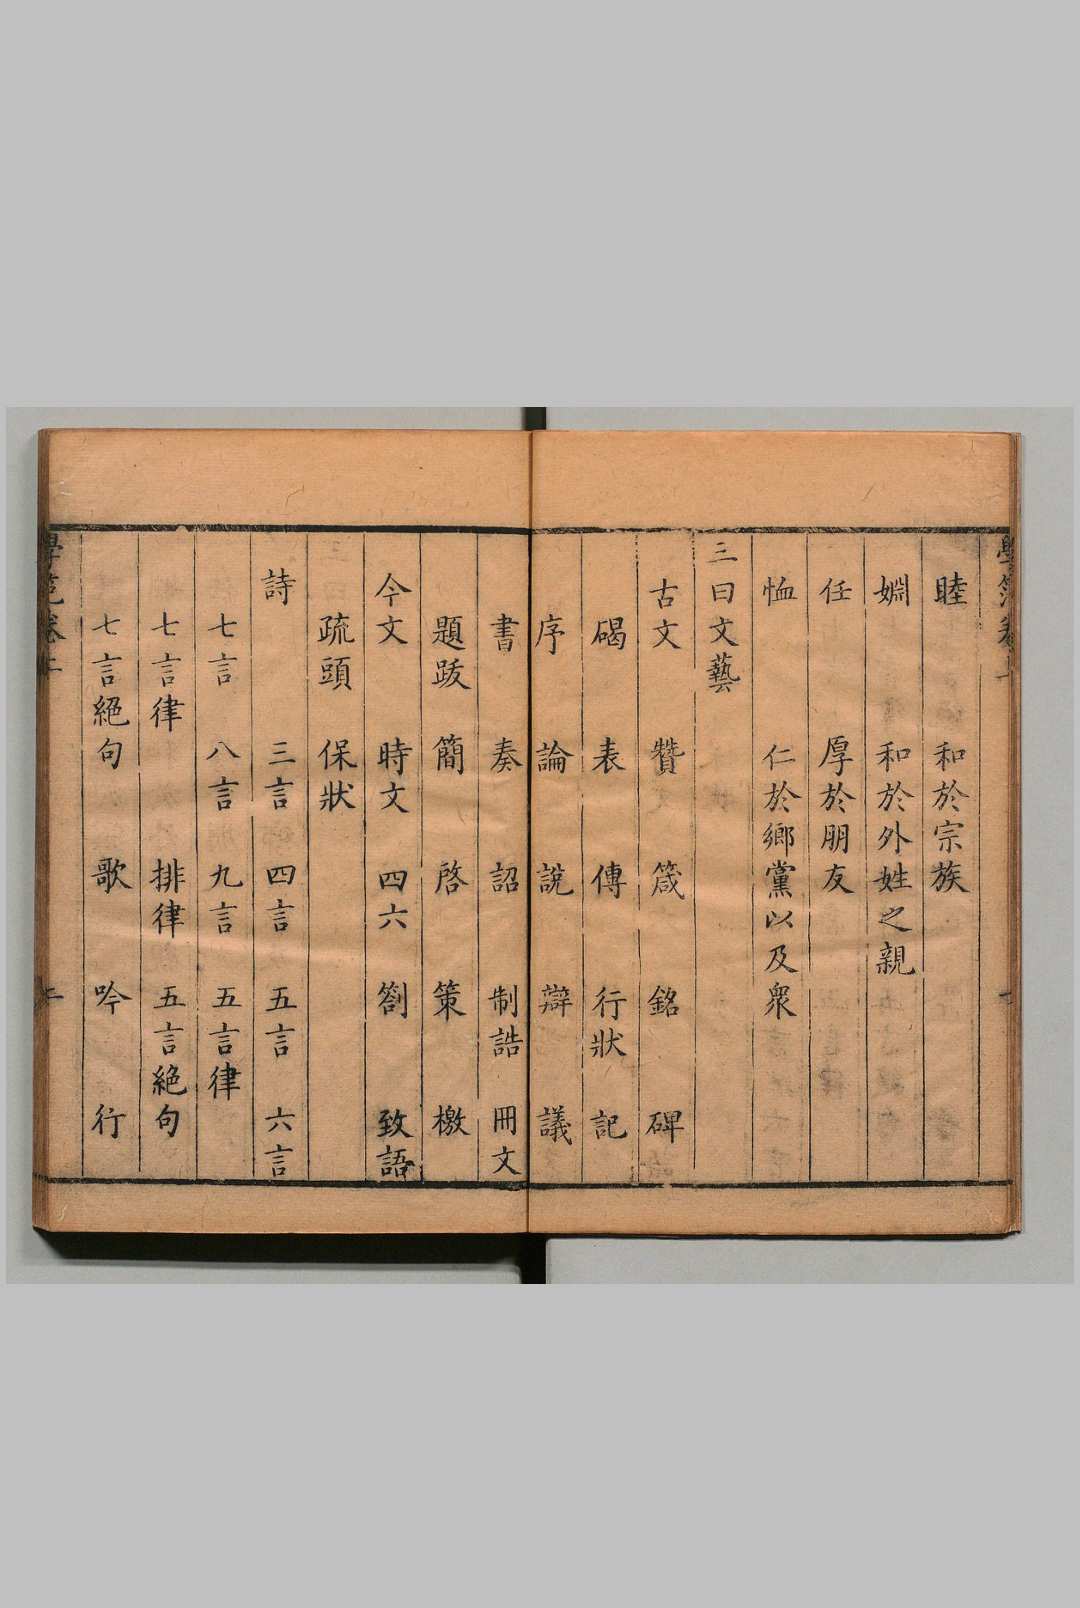 睦 和於宗族
婣 和於外姓之親
任 厚於朋友
恤 仁於鄉黨以及衆
三曰文藝
古文 贊 箴 銘 碑
碣 表 傳 行狀 記
序 論 說 辯 議
書 奏 詔 制誥 冊文
題跋 簡 啓 策 檄
今文 時文 四六 劄 致語
疏頭 保狀
詩 三言 四言 五言 六言
七言 八言 九言 五言律
七言律 排律 五言絕句
七言絕句 歌 吟 行